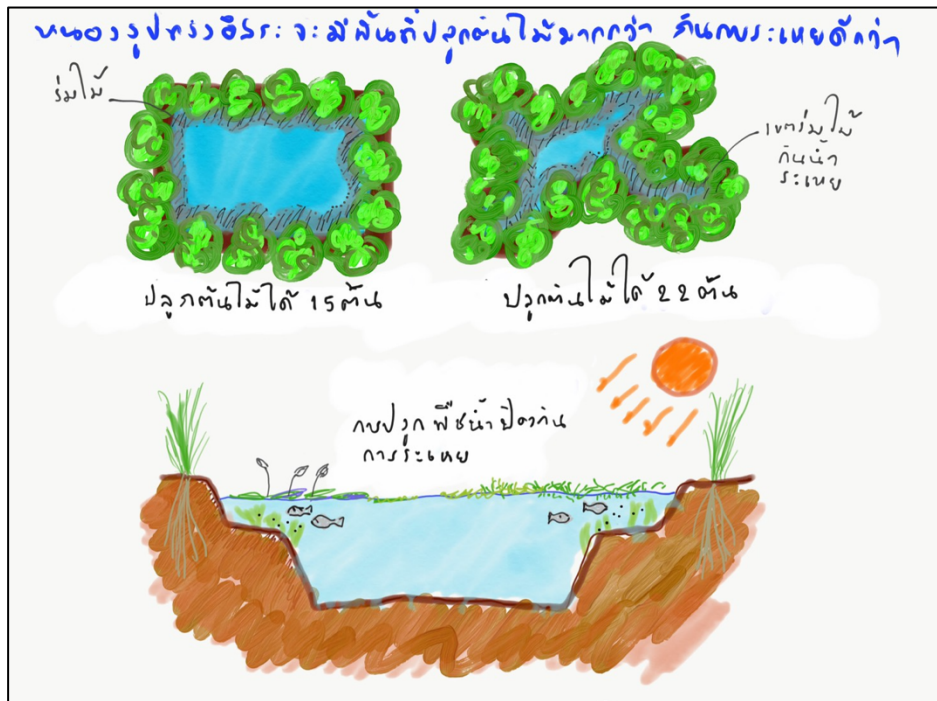 หนองรูปทรงอิสระ จะมีพื้นที่ปลูกต้นไม้มากกว่า กันการระเหยดีกว่า
ร่มไม้
เขตร่มไม้
กันน้ำ
ระเหย
ปลูกต้นไม้ได้ 15 ต้น
ปลูกต้นไม้ได้ 22 ต้น
การปลูกพืชน้ำป้องกัน
การระเหย